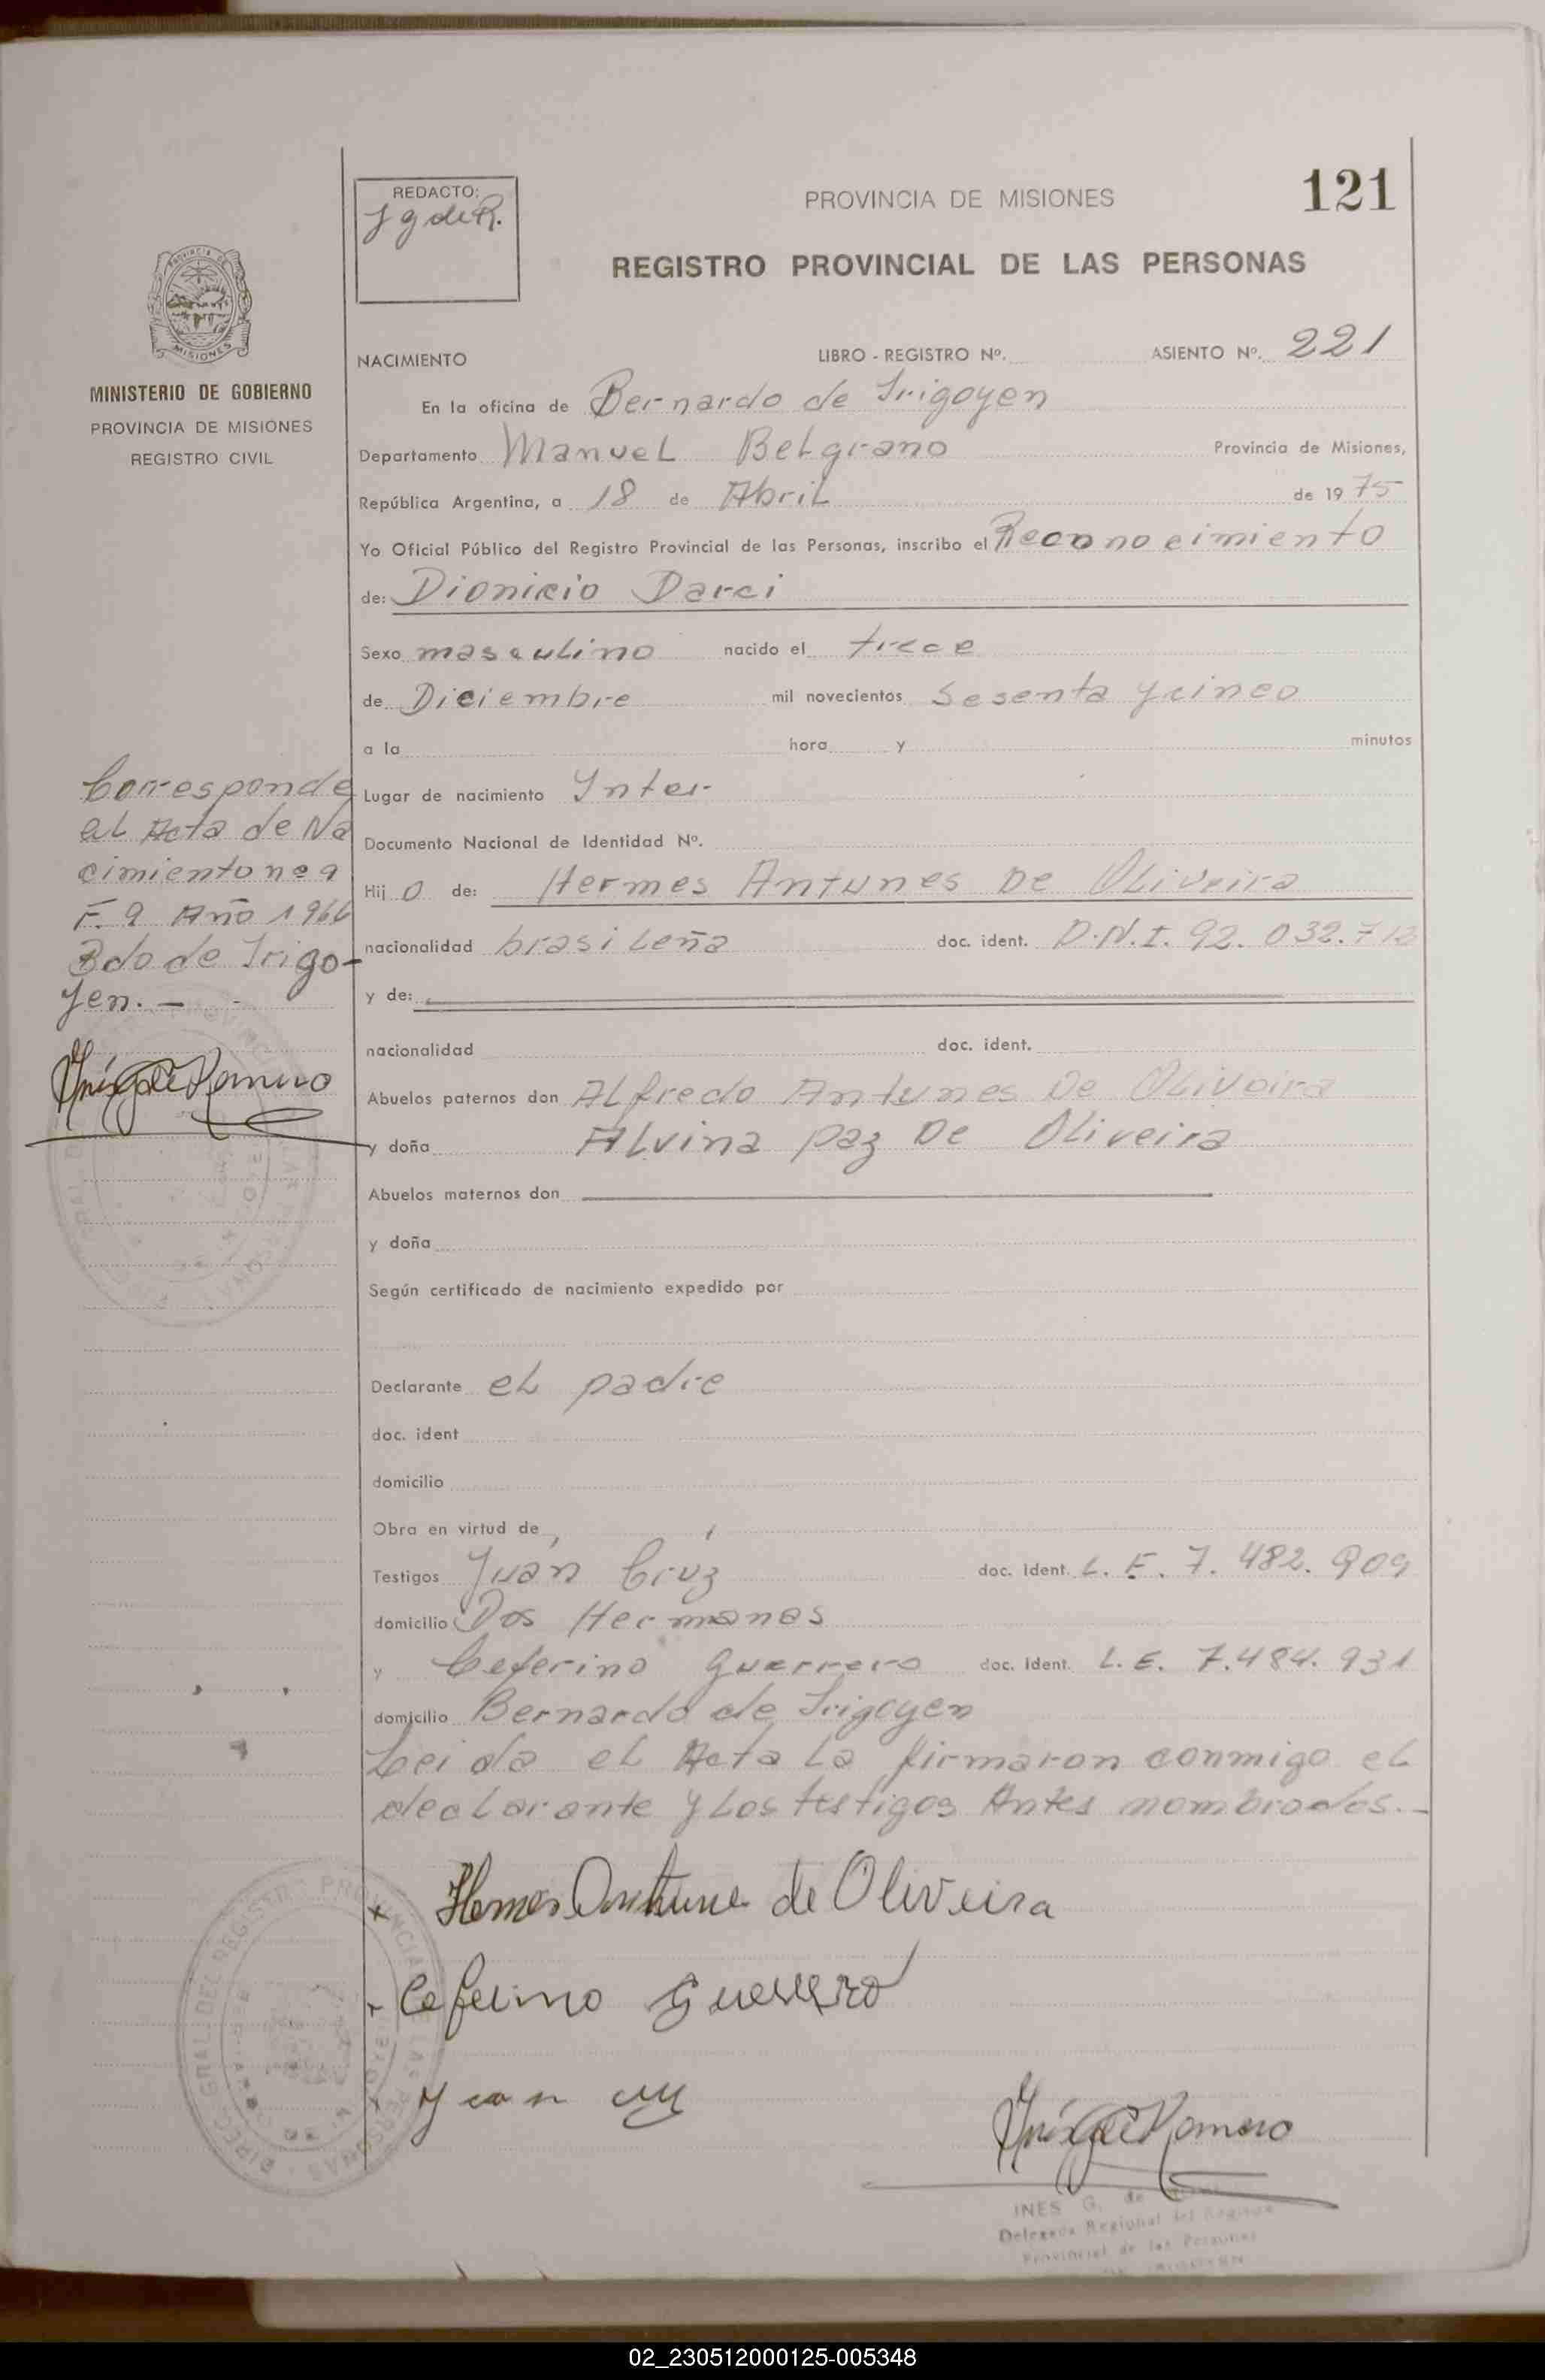 121
REDACTO:
J g de R.
PROVINCIA DE MISIONES
REGISTRO PROVINCIAL DE LAS PERSONAS
MINISTERIO DE GOBIERNO
PROVINCIA DE MISIONES
REGISTRO CIVIL
NACIMIENTO LIBRO - REGISTRO Nº. ASIENTO Nº. 221
En la oficina de Bernardo de Irigoyen
Departamento Manuel Belgrano Provincia de Misiones,
República Argentina, a 18 de Abril de 1975
Yo Oficial Público del Registro Provincial de las Personas, inscribo el Reconocimiento
de: Dionicio Darci
Sexo masculino nacido el trece
de Diciembre mil novecientos Sesenta y cinco
a la hora y minutos
Lugar de nacimiento Inter-
Documento Nacional de Identidad Nº.
Hijo de: Hermes Antunes De Oliveira
nacionalidad brasileña doc. ident. D.N.I. 92.032.712
y de:
nacionalidad doc. ident.
Abuelos paternos don Alfredo Antunes De Oliveira
y doña Alvina paz De Oliveira
Abuelos maternos don
y doña
Según certificado de nacimiento expedido por
Declarante el padre
doc. ident
domicilio
Obra en virtud de
Testigos Juán Crúz doc. Ident. L.E. 7.482.909
domicilio Dos Hermanas
y Ceferino Guerrero doc. Ident. L.E. 7.484.931
domicilio Bernardo de Irigoyen
Leida el Acta la firmaron conmigo el
declarante y los testigos Antes nombrados.-
Corresponde
al Acta de Na
cimiento nº 9
F. 9 Año 1966
Bdo de Irigo-
yen.-
Inés G de Romero
Hermes Antune de Oliveira
Ceferino Guerrero
Juan
Inés G de Romero
INES G. de
Delegada Regional del Registro
Provincial de las Personas
02_230512000125-005348